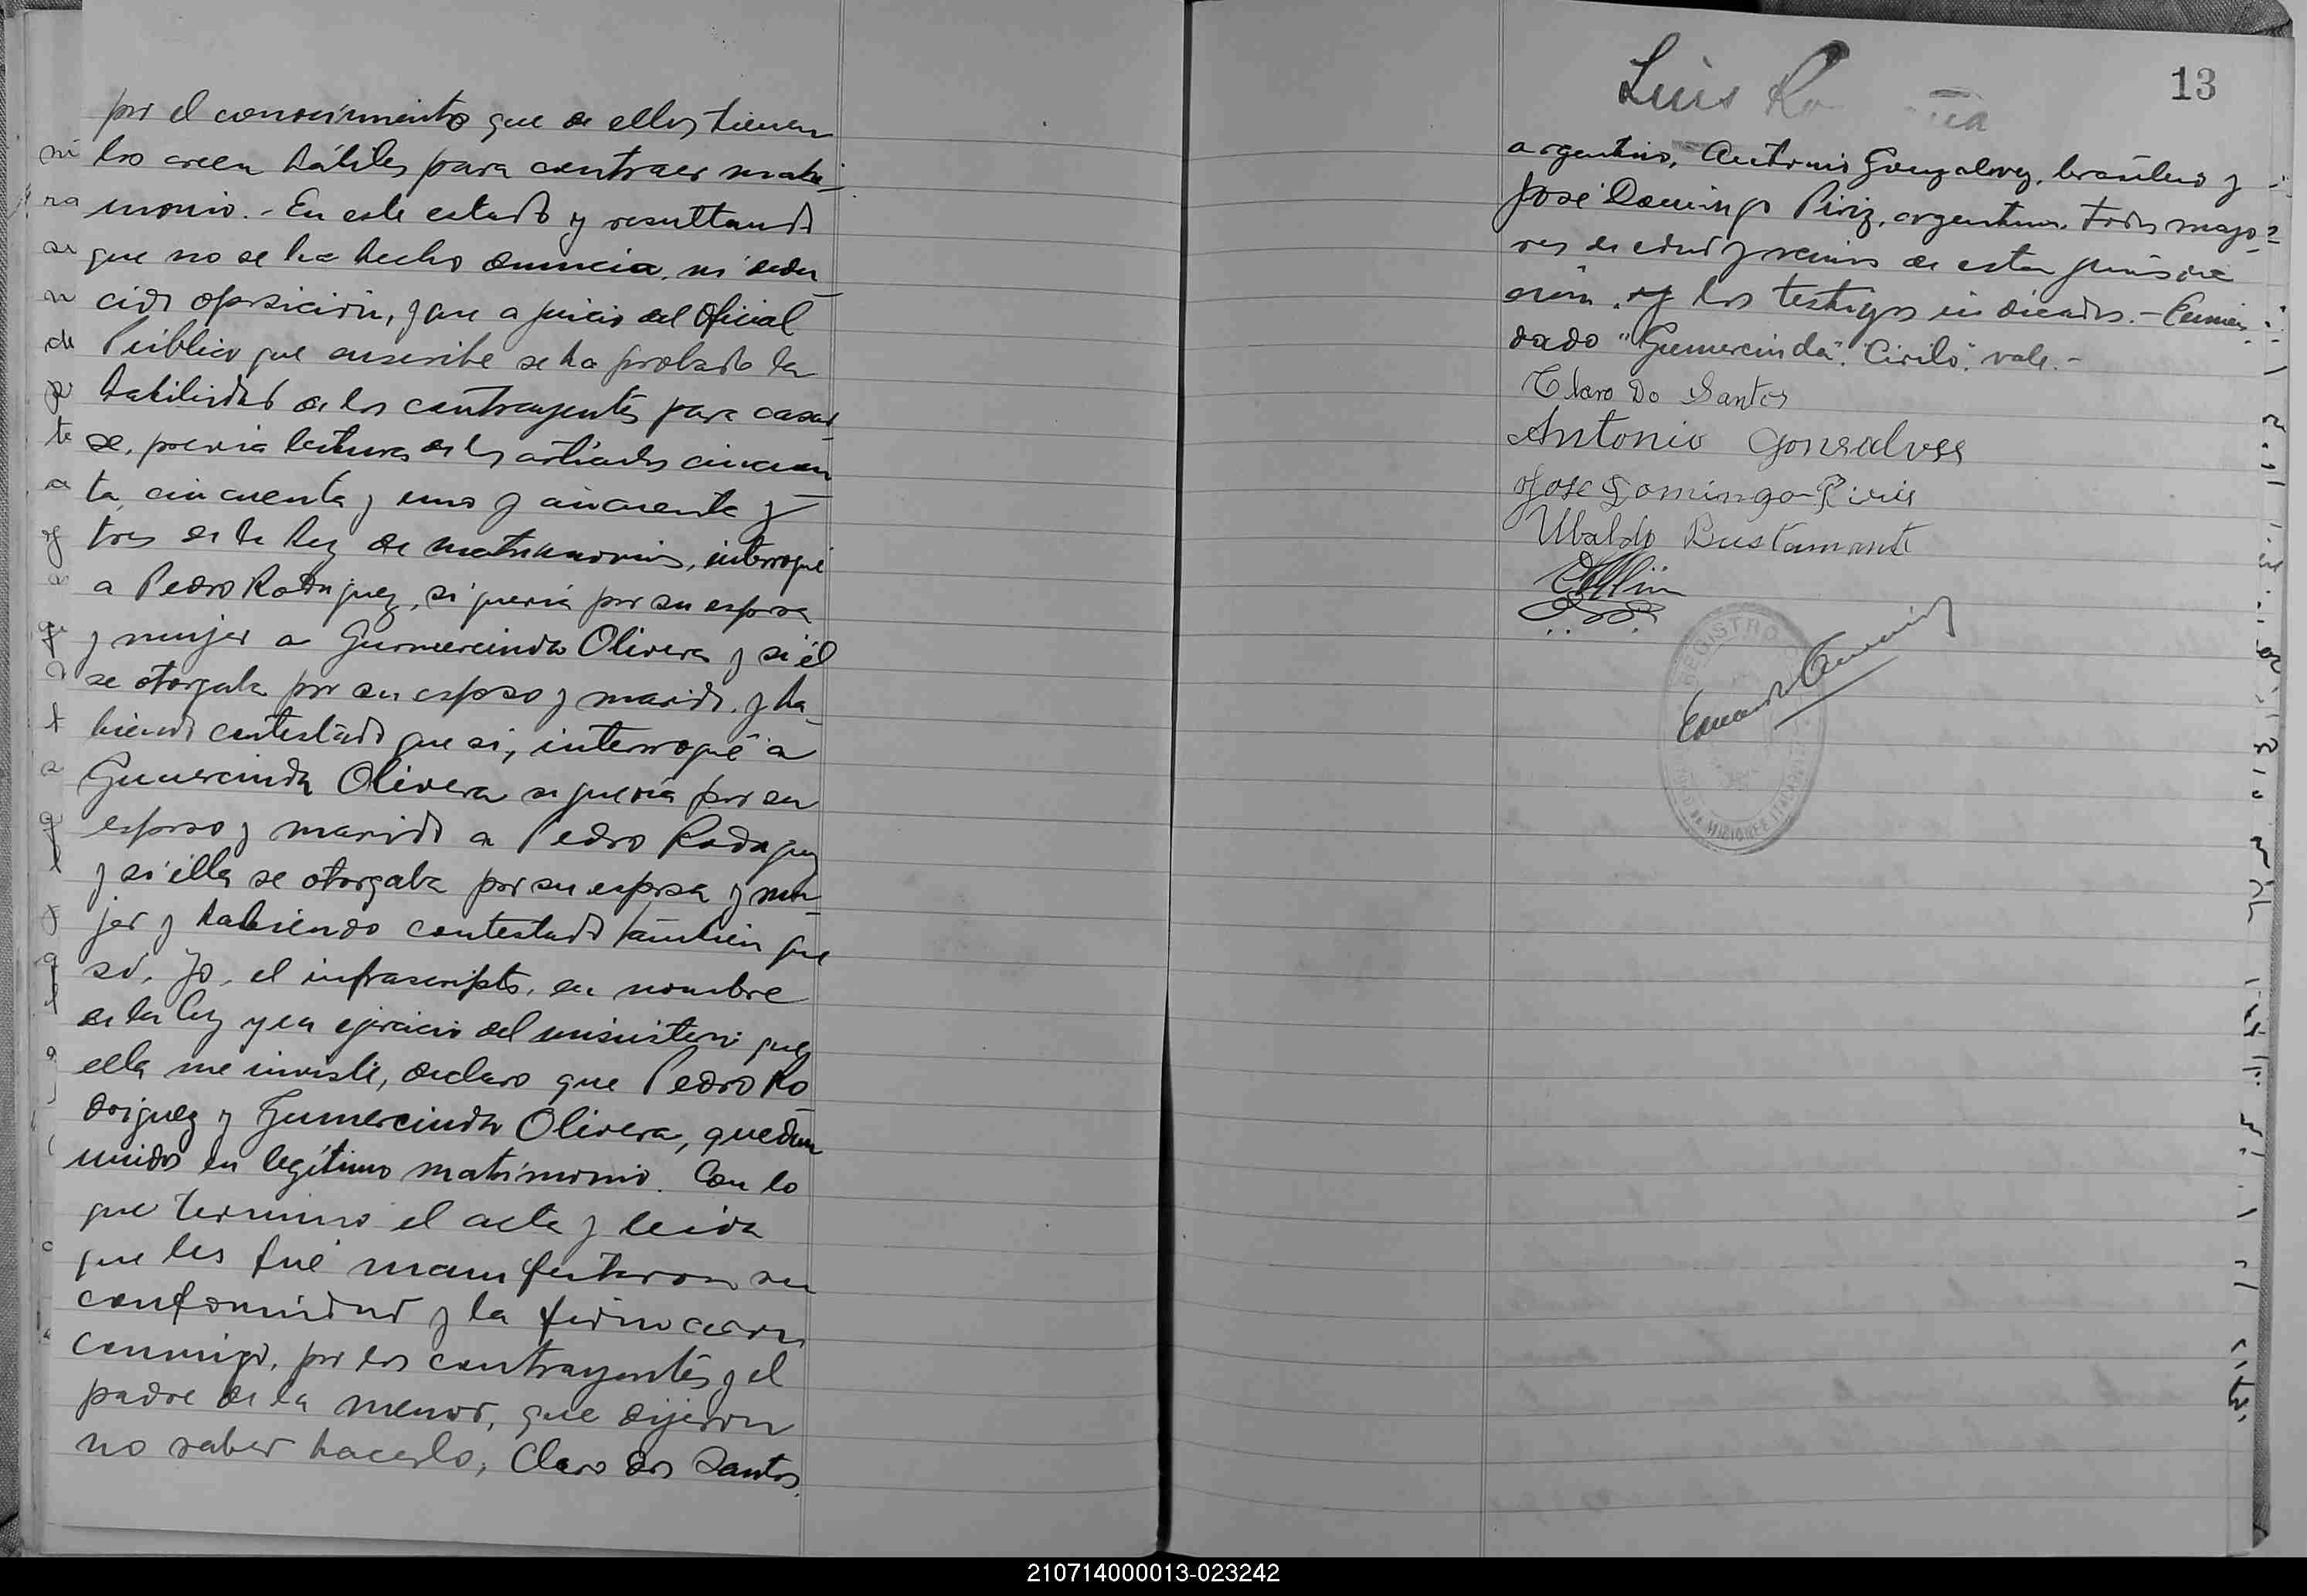 por el conocimiento que de ellos tienen
los creen hábiles para contraer matri-
monio.- En este estado y resultando
que no se ha hecho denuncia, ni dedu-
cido oposición, y que a juicio del Oficial
Público que suscribe se ha probado la
habilidad de los contrayentes para casar-
se, previa lectura de los artículos cincuen-
ta, cincuenta y uno y cincuenta y
tres de la ley de matrimonio, interrogué
a Pedro Rodriguez, si queria por su esposa
y mujer a Gumercinda Olivera y si él
se otorgaba por su esposo y marido, y ha-
biendo contestado que si, interrogué a
Gumercinda Olivera si queria por su
esposo y marido a Pedro Rodriguez
y si ella se otorgaba por su esposa y mu-
jer y habiendo contestado también que
si, Yo, el infrascripto, en nombre
de la ley y en ejercicio del ministerio que
ella me inviste, declaro que Pedro Ro
driguez y Gumercinda Olivera, quedan
unidos en legítimo matrimonio. Con lo
que termino el acta y leida
que les fué manifestaron su
conformidad y la firmaron
conmigo, por los contrayentes y el
padre de la menor, que dijeron
no saber hacerlo, Claro Dos Santos,
13
Luis
argentino, Antonio Gonzalvez, brasilero y
José Domingo Piriz, argentino, todos mayo-
res de edad y vecinos de esta jurisdic
ción y los testigos indicados.- Enmen-
dado "Gumercinda". "Cirilo". vale.-
Claro Do Santos
Antonio Gonsalves
Jose Domingo Piris
Ubaldo Bustamante
REGISTRO
MISIONES
210714000013-023242